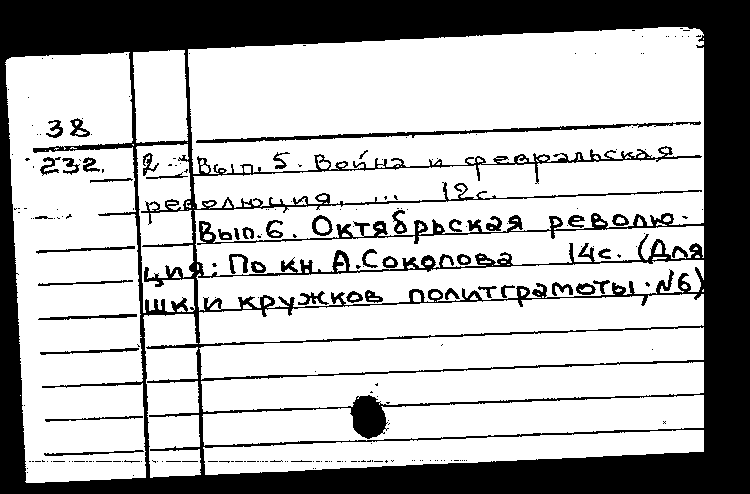 38
232. 2 - Вып. 5. Война и февральская
революция. ... 12с.
Вып. 6. Октябрьская револю-
ция: По кн. А. Соколова 14с. (Для
шк. и кружков политграмоты; №6)